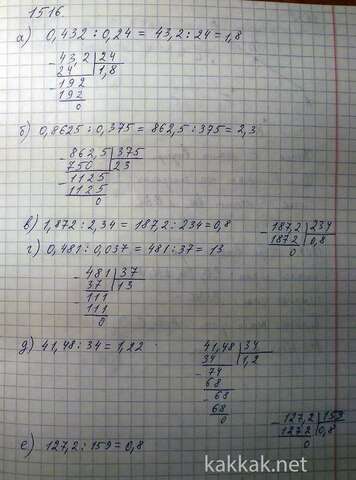 1516.
а) 0,432 : 0,24 = 43,2 : 24 = 1,8
43,2 | 24
24 | 1,8
192
192
0
б) 0,8625 : 0,375 = 862,5 : 375 = 2,3
862,5 | 375
750 | 23
1125
1125
0
в) 1,872 : 2,34 = 187,2 : 234 = 0,8
187,2 | 234
1872 | 0,8
0
г) 0,481 : 0,037 = 481 : 37 = 13
481 | 37
37 | 13
111
111
0
д) 41,48 : 34 = 1,22
41,48 | 34
34 | 1,2
74
68
68
68
0
е) 127,2 : 159 = 0,8
127,2 | 159
1272 | 0,8
0
kakkak.net